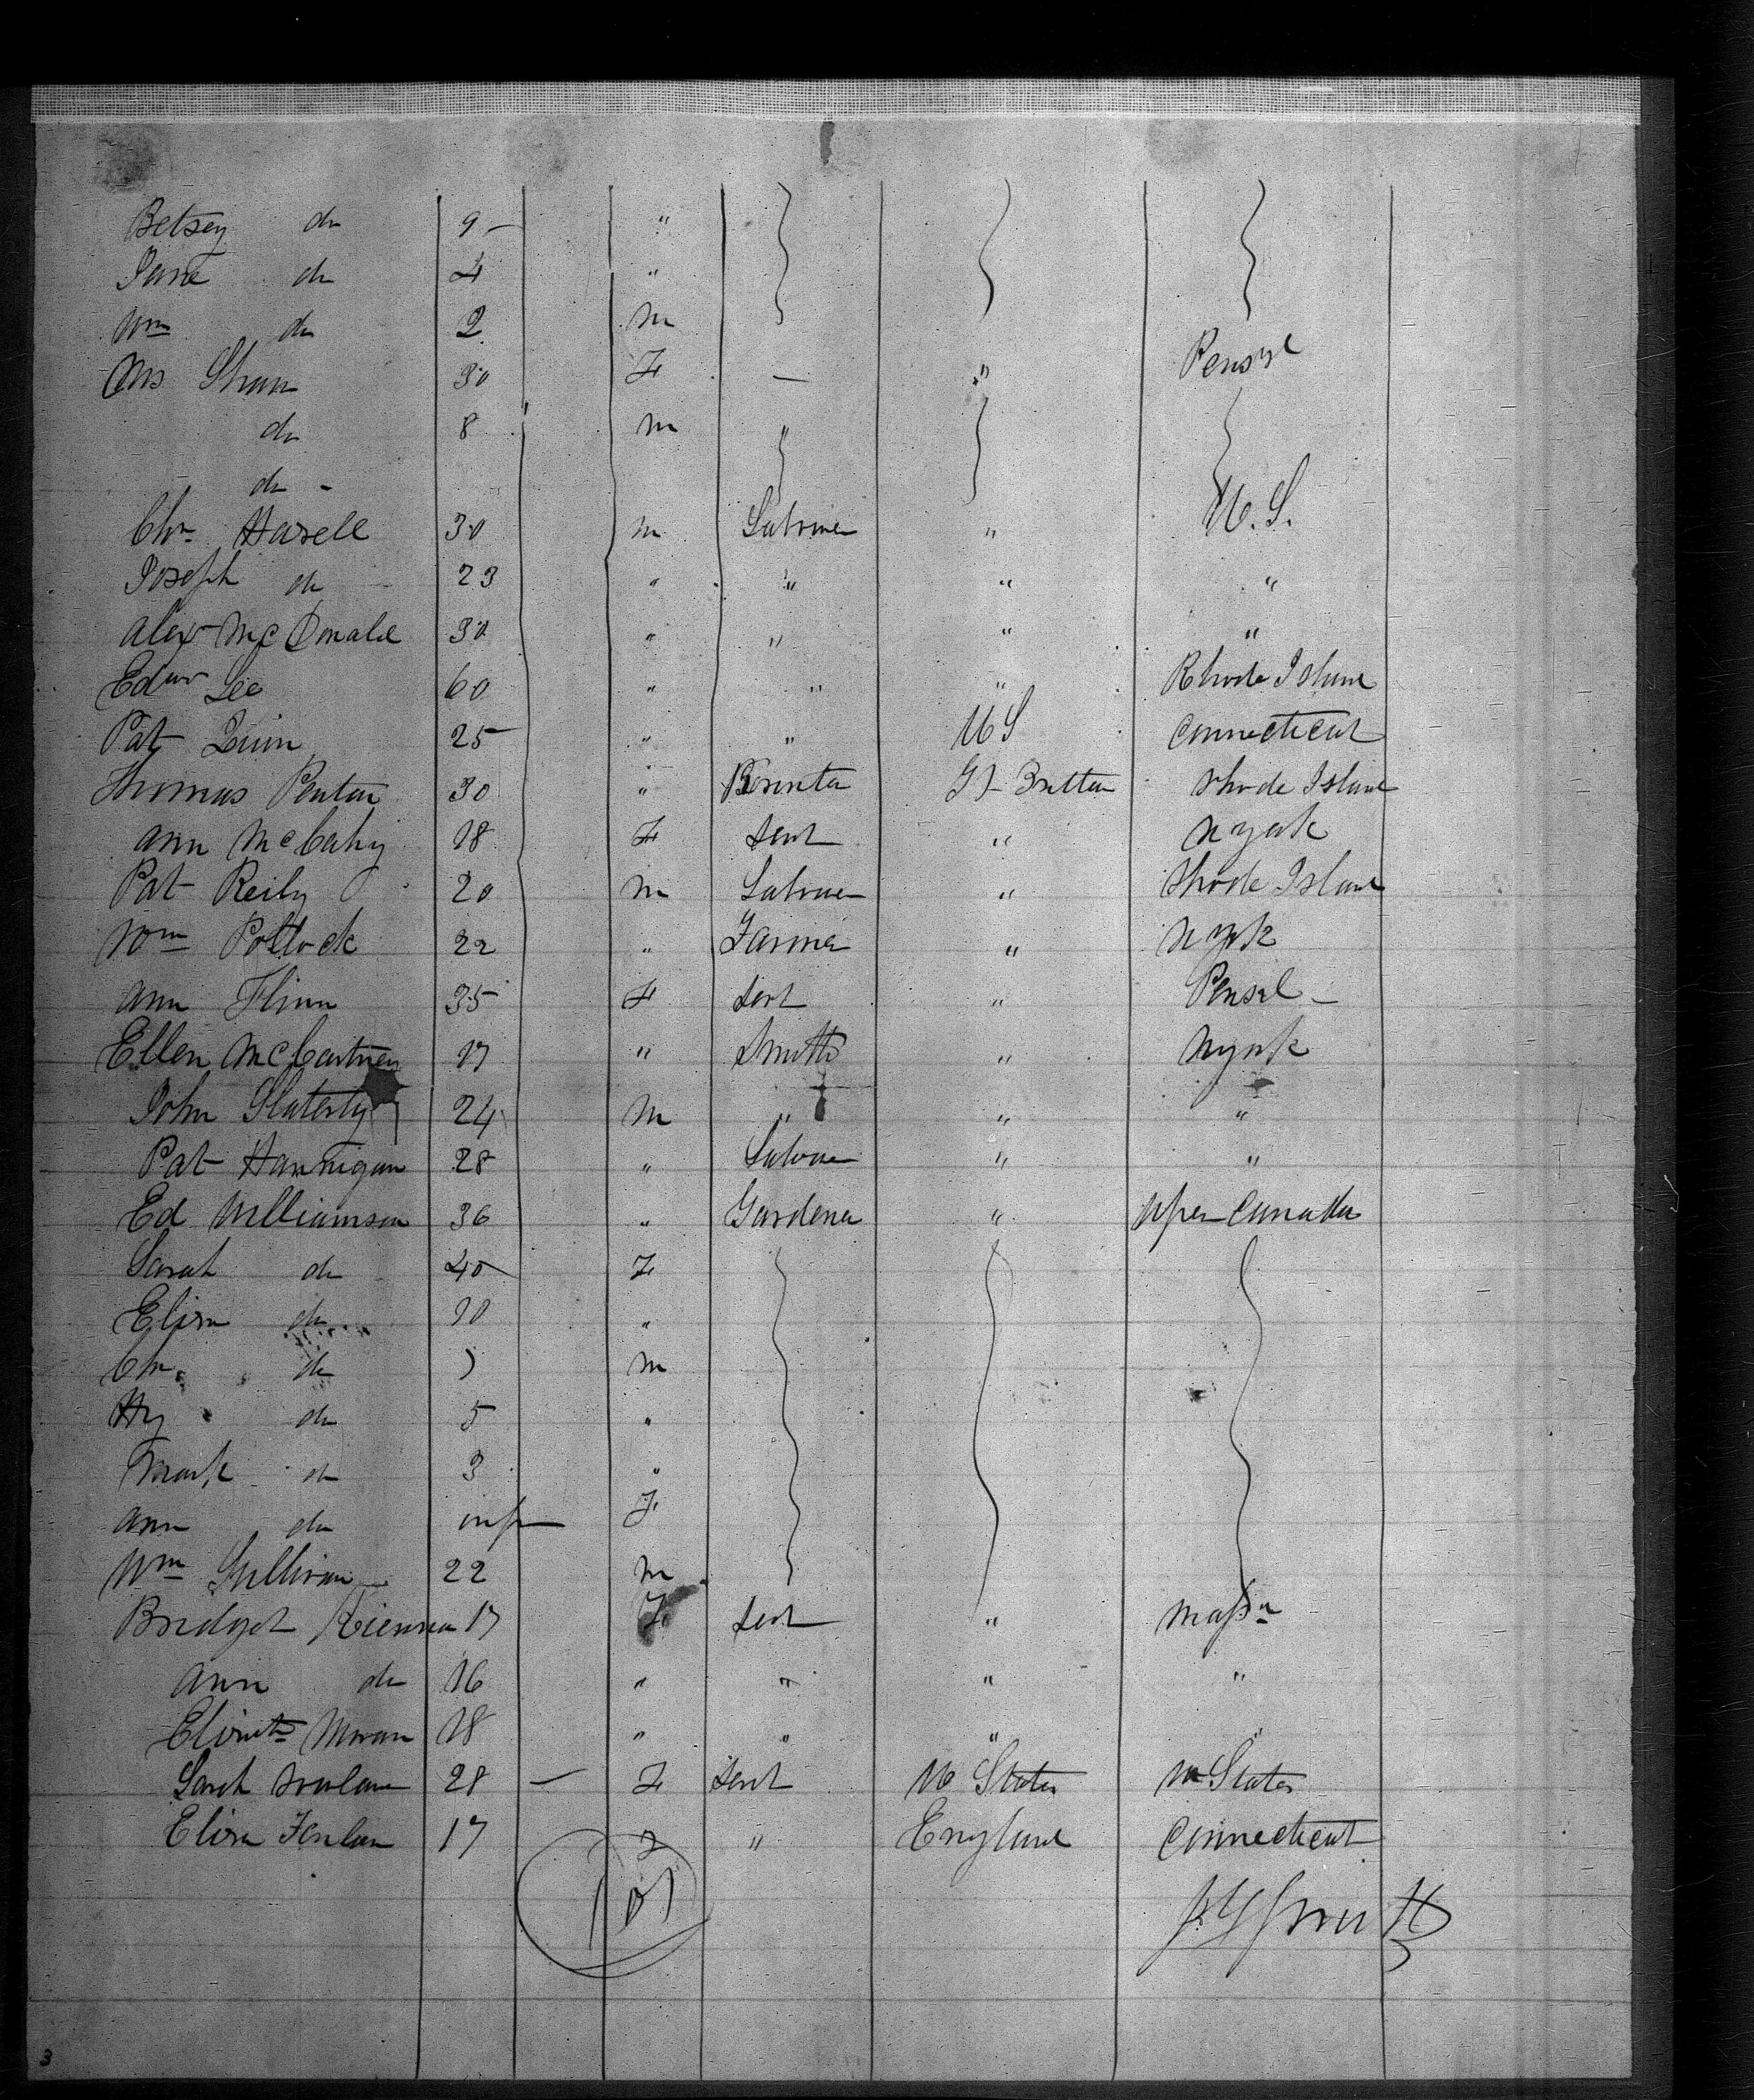 Betsey do 9 "
Jane do 4 "
Wm do 2 m
Mrs Shaw 30 F — " Pensyl
do 8 m "
do -
Chs Hasell 30 m Labourer " U.S.
Joseph do 23 " " " "
Alex McDonald 30 " " " "
Edwd Lee 60 " " " Rhode Island
Pat Quinn 25 " " U S Connecticut
Thomas 30 " Gt Brittan Rhode Island
Ann McCahy 18 F Servt " N York
Pat Reily 20 m Labourer " Rhode Island
Wm Pollock 22 " Farmer " N York
Ann Flinn 35 F Servt " Pensyl -
Ellen McCartney 17 " Smith " N York
John Slaterty 24 m " " "
Pat Hannigan 28 " Labourer " "
Ed Williamson 36 " Gardener " Uper Canada
Sarah do 40 F
Eliza do 10 "
Ch. do 7 m
Hy do 5 "
Mark do 3 "
Ann do inf F
Wm Sullivan 22 m
Bridget Kiernan 17 F Servt " Massa
Ann do 16 " " " "
Elizath Moran 18 " " " "
Sarah 28 — F Servt U States U States
Eliza Fenlan 17 F " England Connecticut
3